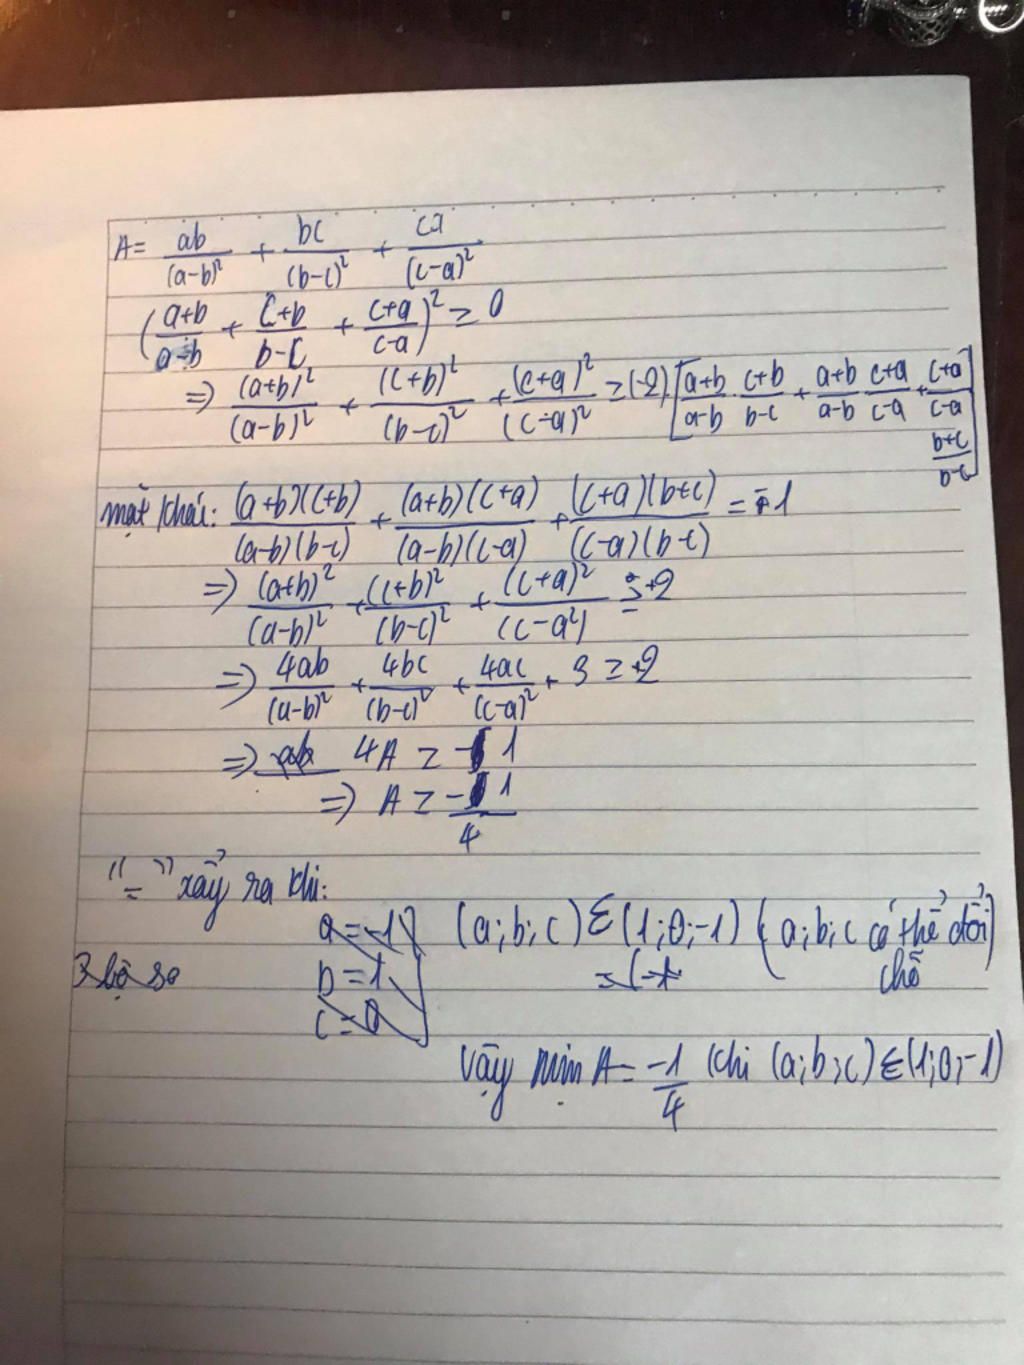 A = ab/(a-b)² + bc/(b-c)² + ca/(c-a)²
((a+b)/(a-b) + (c+b)/(b-c) + (c+a)/(c-a))² ≥ 0
⇒ (a+b)²/(a-b)² + (c+b)²/(b-c)² + (c+a)²/(c-a)² ≥ (-2).[(a+b)/(a-b) . (c+b)/(b-c) + (a+b)/(a-b) . (c+a)/(c-a) + (c+a)/(c-a) (b+c)/(b-c)]
mặt khác: (a+b)(c+b)/(a-b)(b-c) + (a+b)(c+a)/(a-b)(c-a) + (c+a)(b+c)/(c-a)(b-c) = -1
⇒ (a+b)²/(a-b)² + (c+b)²/(b-c)² + (c+a)²/(c-a²) ≥ 2
⇒ 4ab/(a-b)² + 4bc/(b-c)² + 4ac/(c-a)² + 3 ≥ 2
⇒ 4A ≥ -1
⇒ A ≥ -1/4
"=" xảy ra khi:
a = -1
b = 1
c = 0
(a;b;c) ∈ (1;0;-1) (a;b;c có thể đổi chỗ)
Vậy min A = -1/4 khi (a;b;c) ∈ (1;0;-1)